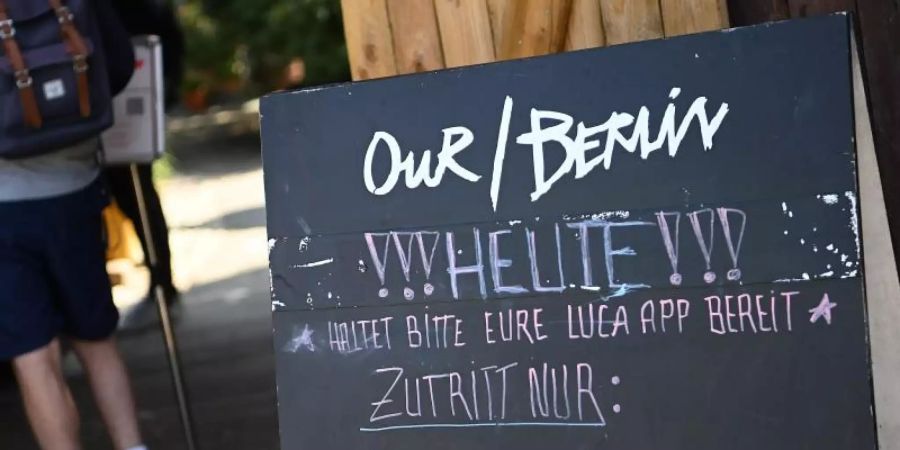 OUR/BERLIN
!!! HEUTE !!!
HALTET BITTE EURE LUCA APP BEREIT
ZUTRITT NUR: